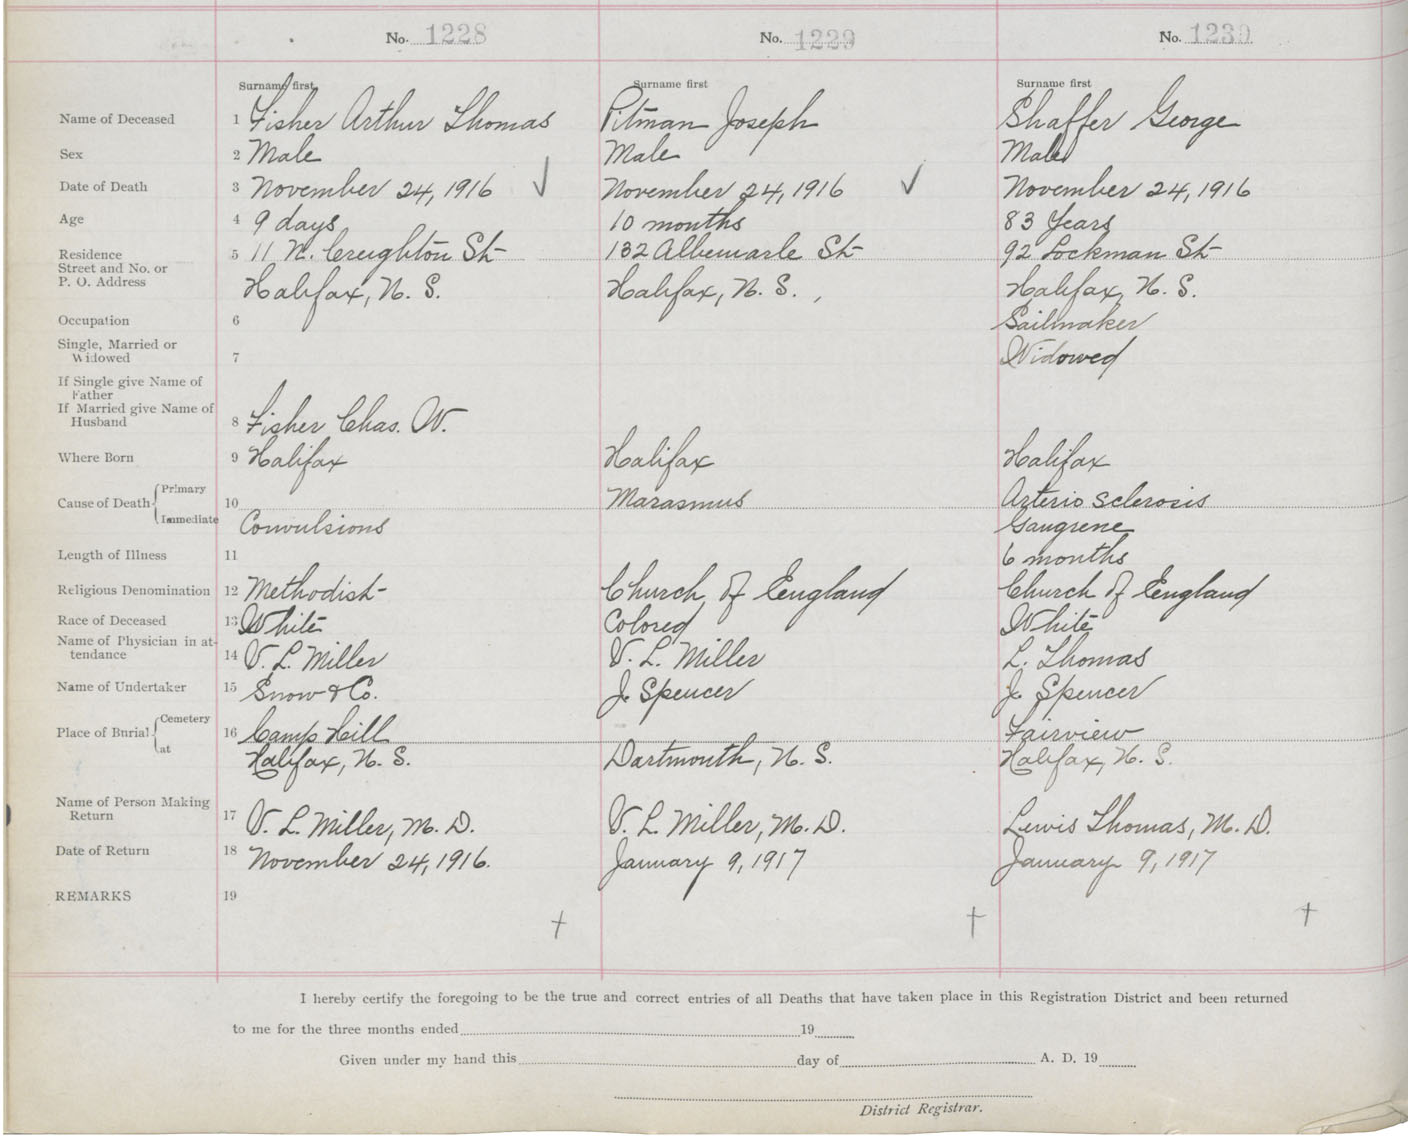 No. 1228 No. 1229 No. 1230
Surname first Surname first Surname first
Name of Deceased 1 Fisher Arthur Thomas Pitman Joseph Shaffer George
Sex 2 Male Male Male
Date of Death 3 November 24, 1916 November 24, 1916 November 24, 1916
Age 4 9 days 10 months 83 Years
Residence 5 11 N. Creighton St 132 Albemarle St 92 Lockman St
Street and No. or
P. O. Address Halifax, N. S. Halifax, N. S. Halifax, N. S.
Occupation 6 Sailmaker
Single, Married or
Widowed 7 Widowed
If Single give Name of
Father
If Married give Name of
Husband 8 Fisher Chas. W.
Where Born 9 Halifax Halifax Halifax
Primary
Cause of Death 10 Marasmus Arterio Sclerosis
Immediate Convulsions Gangrene
Length of Illness 11 6 months
Religious Denomination 12 Methodist Church of England Church of England
Race of Deceased 13 White Colored White
Name of Physician in at-
tendance 14 V. L. Miller V. L. Miller L. Thomas
Name of Undertaker 15 Snow & Co. J. Spencer J. Spencer
Cemetery
Place of Burial 16 Camp Hill Fairview
at Halifax, N. S. Dartmouth, N. S. Halifax, N. S.
Name of Person Making
Return 17 V. L. Miller, M. D. V. L. Miller, M. D. Lewis Thomas, M. D.
Date of Return 18 November 24, 1916. January 9, 1917 January 9, 1917
REMARKS 19
I hereby certify the foregoing to be the true and correct entries of all Deaths that have taken place in this Registration District and been returned
to me for the three months ended 19
Given under my hand this day of A. D. 19
District Registrar.